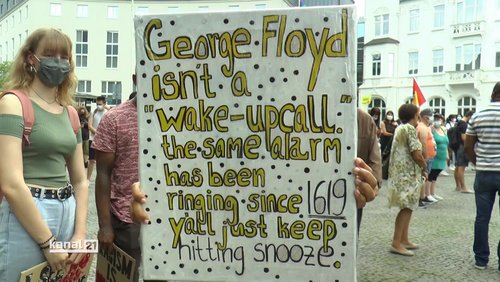 George Floyd
isnt a
"wake-up call."
the same alarm
has been
ringing since 1619
yall just keep
hitting snooze.
kanal 21